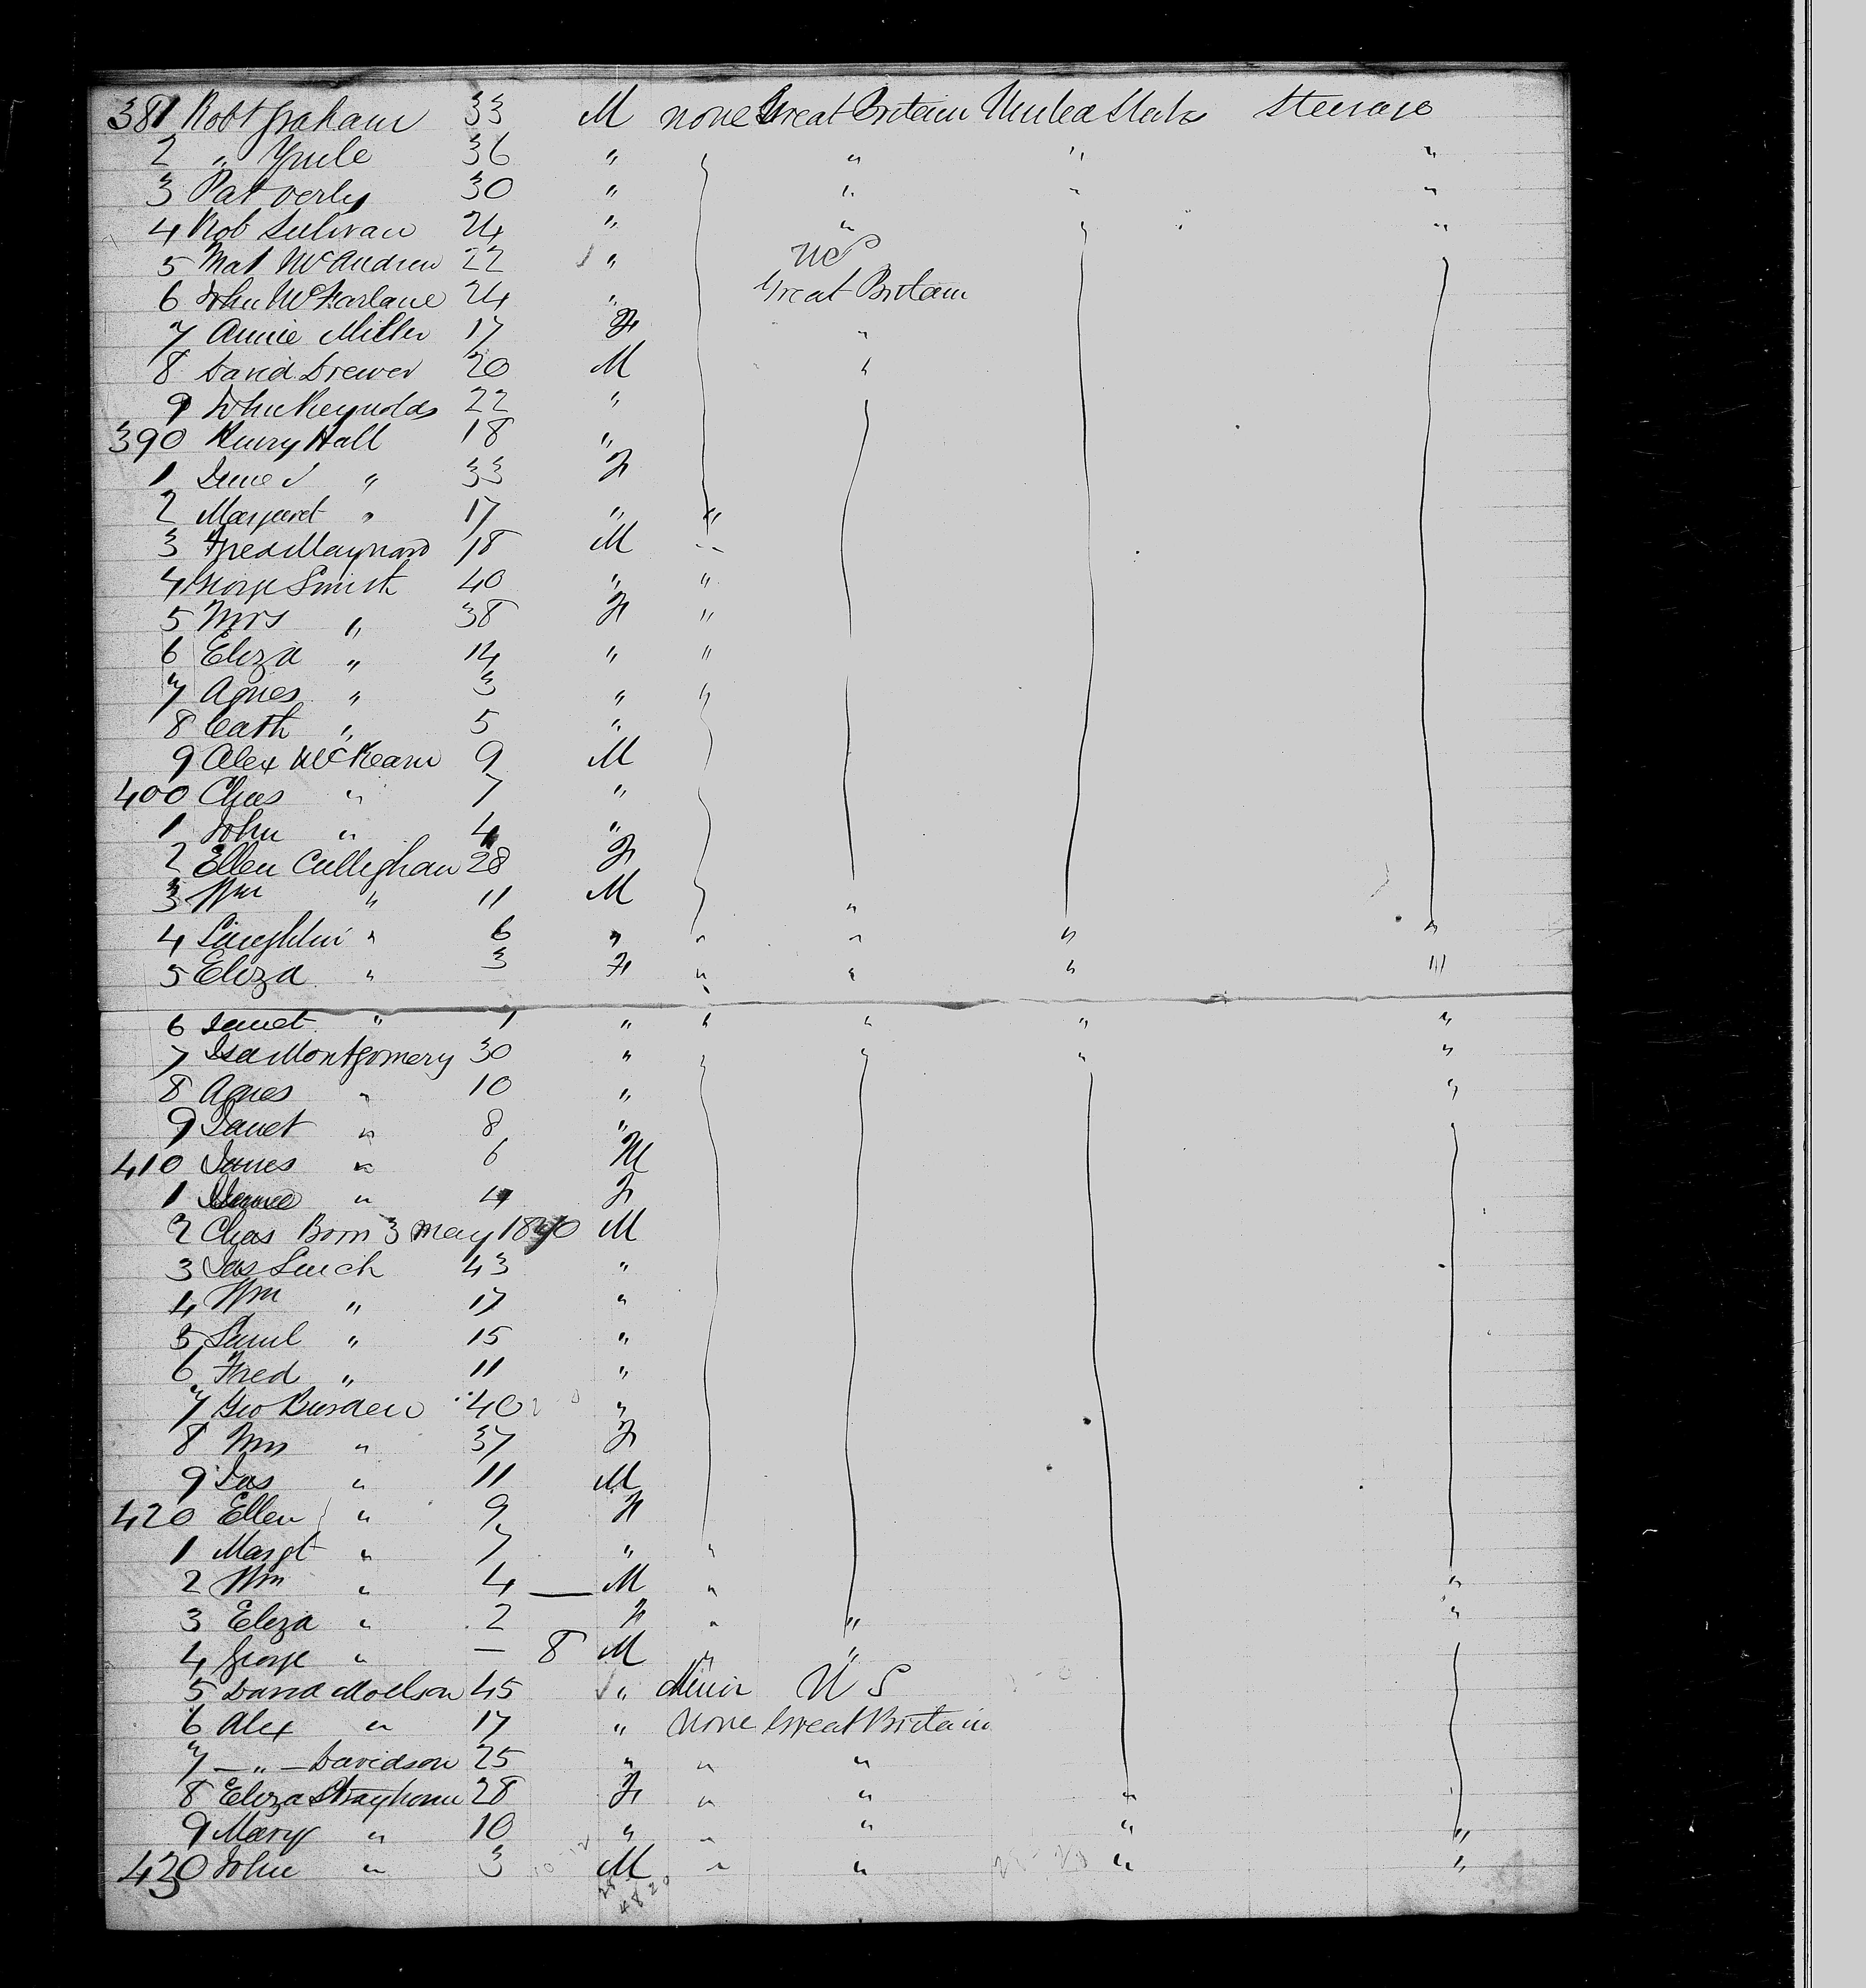 381 Robt Graham 33 M none Great Britain United States Steerage
2 " Yuile 36 " " " "
3 Pat 30 " " " "
4 Rob Sulivan 24 " " " "
5 Mat McAndrew 22 " US
6 John McFarlane 24 " Great Britain
7 Annie Miller 17 F "
8 David Drewer 20 M "
9 John Reynolds 22 "
390 Henry Hall 18 "
1 " 33 F
2 Margaret " 17 " "
3 Fred Maynard 18 M "
4 George Smith 40 " "
5 Mrs " 38 F "
6 Eliza " 14 " "
7 Agnes " 3 " "
8 Cath " 5 "
9 Alex McKeam 9 M
400 Chas " 7 "
1 John " 4 "
2 Ellen Cullighan 28 F
3 Wm " 11 M "
4 Laughlin " 6 " " " " "
5 Eliza " 3 F " " " "
6 Janet " 1 " " " " "
7 Isa Montgomery 30 " " " "
8 Agnes " 10 " "
9 Janet " 8 "
410 James " 6 M
1 " 4 F
2 Chas Born 3 May 1870 M
3 Jas 43 "
4 Wm " 17 "
5 Saml " 15 "
6 Fred " 11 "
7 Geo Burden 40 "
8 Mrs " 37 F
9 Jas " 11 M
420 Ellen " 9 F
1 Margt " 7 " "
2 Wm " 4 — M " "
3 Eliza " 2 F " " "
4 George " — 8 M " "
5 David Moelson 45 " Miner U S
6 Alex " 17 " None Great Britain
7 — " — Davidson 25 " " "
8 Eliza Strayhorn 28 F " " "
9 Mary " 10 " " " " "
430 John " 3 M " " " "